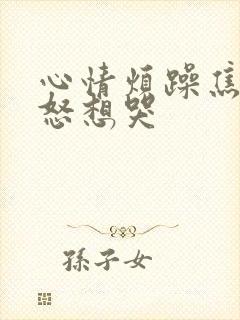 心情烦躁焦
怒想哭
孫子女